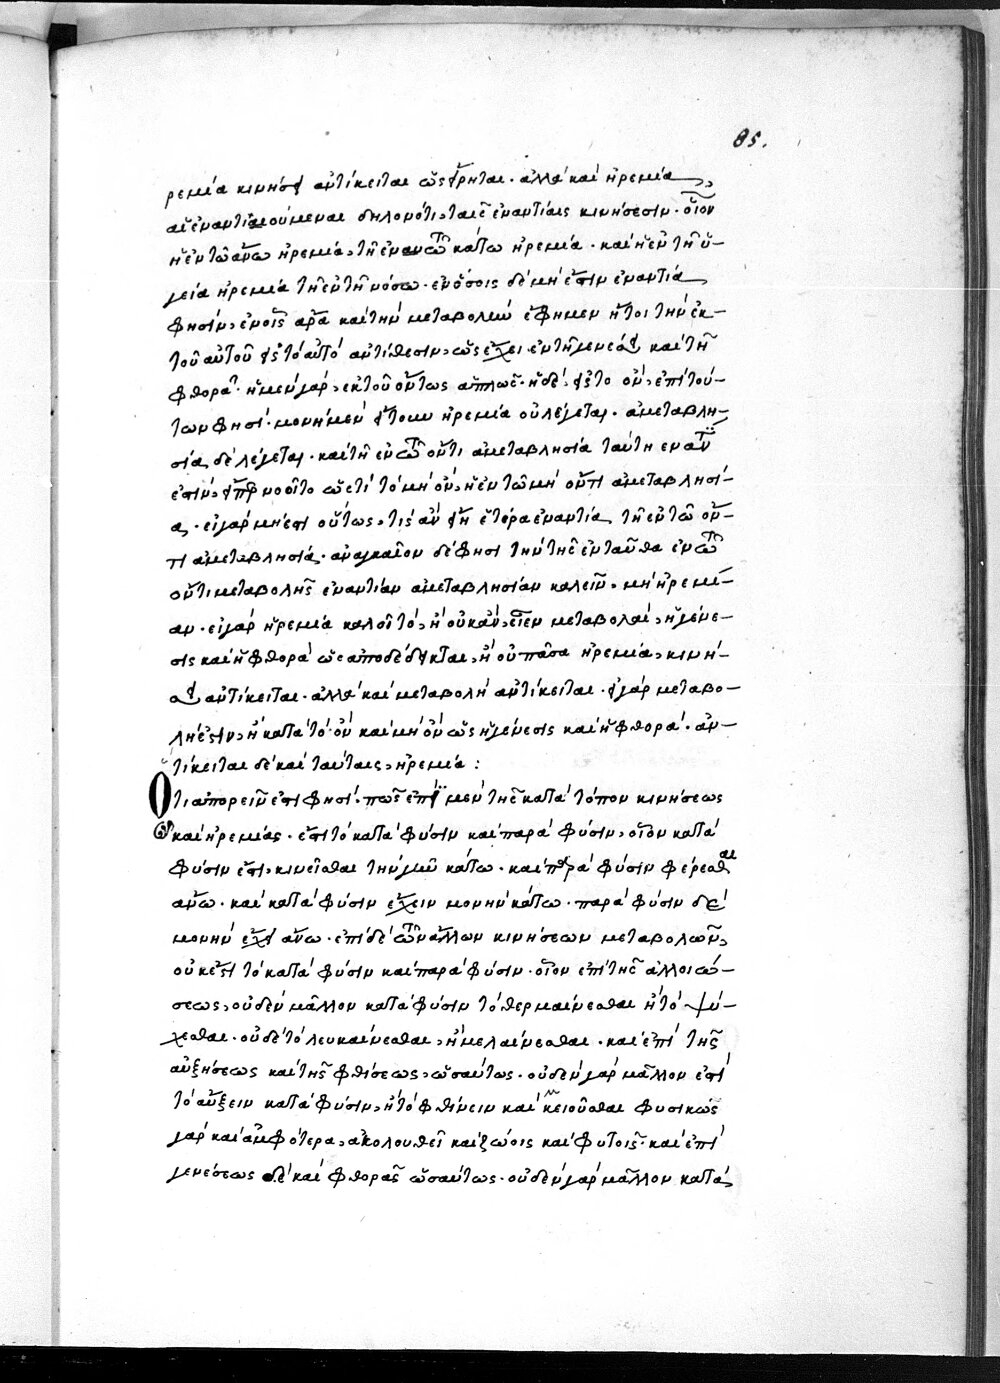 85.
ρεμία κινήσει ἀντίκειται ὡς εἴρηται. ἀλλὰ καὶ ἠρεμία,
αἱ ἐναντιούμεναι δηλονότι, ταῖς ἐναντίαις κινήσεσιν. οἷον
ἡ ἐν τῷ ἄνω ἠρεμία, τῇ ἐν τῷ κάτω ἠρεμία. καὶ ἡ ἐν τῇ ὑ-
γεία ἠρεμία τῇ ἐν τῇ νόσω. ἐν ὅσοις δὲ μή ἐστιν ἐναντία
φησίν, ἐν οἷς ἄρα καὶ τὴν μεταβολὴν ἔφημεν ἤτοι τὴν ἐκ
τοῦ αὐτοῦ εἰς τὸ αὐτὸ ἀντίθεσιν, ὡς ἔχει ἐν τῇ γενέσει καὶ τῇ
φθορᾷ. ἡ μὲν γὰρ, ἐκ τοῦ ὄντως ἁπλῶς. ἡ δὲ, εἰς τὸ ὄν, ἐπὶ τού-
των φησὶ. μονὴ μὲν ἤτουν ἠρεμία οὐ λέγεται. ἀμεταβλη-
σία δὲ λέγεται. καὶ τῇ ἐν τῷ ὄντι ἀμεταβλησία ταύτη ἐναντία
ἐστὶν, εἴπερ νοοῖτο ὡς ἐστὶ τὸ μὴ ὂν, ἡ ἐν τῷ μὴ ὄντι ἀμεταβλησί-
α. εἰ γὰρ μή ἐστι οὕτως, τίς ἂν εἴη ἑτέρα ἐναντία τῇ ἐν τῷ ὄν-
τι ἀμεταβλησία. ἀναγκαῖον δέ φησι τὴν τῆς ἐνταῦθα ἐν τῷ
ὄντι μεταβολῆς ἐναντίαν ἀμεταβλησίαν καλεῖν, μὴ ἠρεμί-
αν. εἰ γὰρ ἠρεμία καλοῖτο, ἢ οὐκ ἂν, εἶεν μεταβολαὶ, ἡ γένε-
σις καὶ ἡ φθορὰ ὡς ἀποδέδεικται, ἢ οὐ πᾶσα ἠρεμία, κινή-
σει ἀντίκειται. ἀλλὰ καὶ μεταβολὴ ἀντίκειται. εἰ γὰρ μεταβο-
λή ἐστιν, ἡ κατὰ τὸ ὂν καὶ μὴ ὂν ὡς ἡ γένεσις καὶ ἡ φθορὰ. ἀν-
τίκειται δὲ καὶ ταύταις, ἠρεμία :
Ὅτι ἀπορεῖν ἐστι φησὶ. πῶς ἐπὶ μὲν τῆς κατὰ τόπον κινήσεως
καὶ ἠρεμίας. ἐστὶ τὸ κατὰ φύσιν καὶ παρὰ φύσιν, οἷον κατὰ
φύσιν ἐστὶ, κινεῖσθαι τὴν γῆν κάτω. καὶ παρὰ φύσιν φέρεσθαι
ἄνω. καὶ κατὰ φύσιν ἔχειν μονὴν κάτω. παρὰ φύσιν δὲ
μονὴν ἔχει ἄνω. ἐπὶ δὲ τῶν ἄλλων κινήσεων μεταβολῶν,
οὐκ ἔστι τὸ κατὰ φύσιν καὶ παρὰ φύσιν. οἷον ἐπὶ τῆς ἀλλοιώ-
σεως, οὐδὲν μᾶλλον κατὰ φύσιν τὸ θερμαίνεσθαι ἢ τὸ ψύ-
χεσθαι. οὐδὲ τὸ λευκαίνεσθαι, ἢ μελαίνεσθαι. καὶ ἐπὶ τῆς
αὐξήσεως καὶ τῆς φθίσεως, ὡσαύτως. οὐδὲν γὰρ μᾶλλον ἐστὶ
τὸ αὔξειν κατὰ φύσιν, ἢ τὸ φθίνειν καὶ μειοῦσθαι φυσικῶς
γὰρ καὶ ἀμφότερα, ἀκολουθεῖ καὶ ζώοις καὶ φυτοῖς. καὶ ἐπὶ
γενέσεως δὲ καὶ φθορᾶς ὡσαύτως. οὐδὲν γὰρ μᾶλλον κατὰ